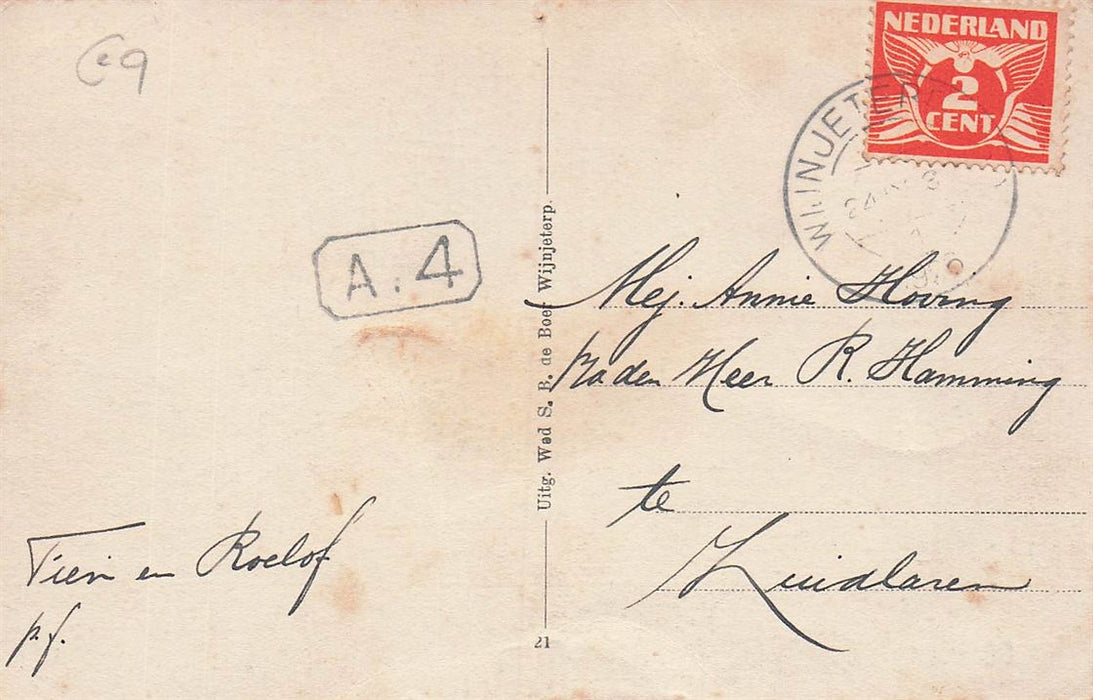 C.9
NEDERLAND
2
CENT
WIJNJETERP
A.4
Mej. Annie Hoving
p/a den Heer R. Hamming
te
Zuidlaren
Tien en Roelof
p.f.
Uitg. Wed S. B. de Boer Wijnjeterp.
21